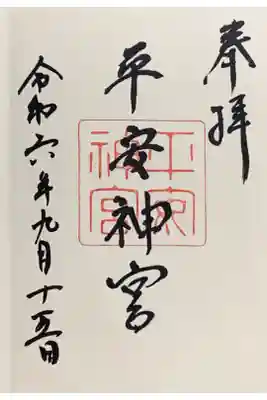 奉拝
平安神宮
令和六年九月十五日
平安神宮